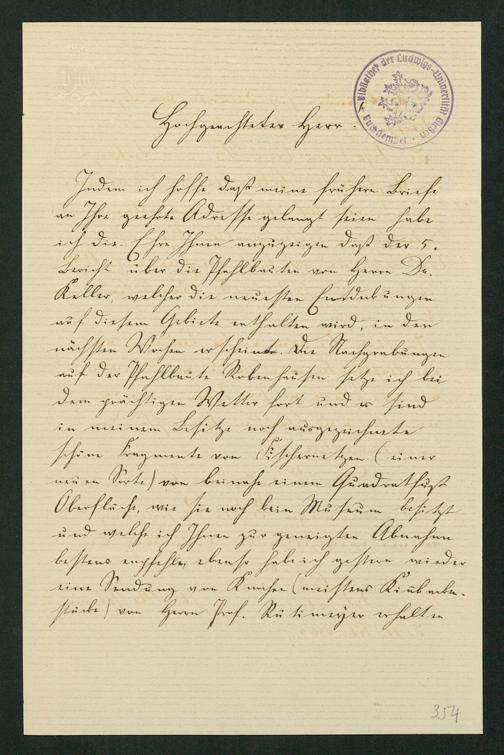 Bibliothek der Ludwigs-Universität Giessen
Hochgeachteter Herr.
Indem ich hoffe daß meine frühere Briefe
an Ihre geehrte Adresse gelangt seien habe
ich die Ehre Ihnen anzuzeigen daß der 5.
Bericht über die Pfahlbauten von Herrn Dr.
Keller, welcher die neuesten Entdekungen
auf diesem Gebiete enthalten wird, in den
nächsten Wochen erscheint. Die Nachgrabungen
auf der Pfahlbaute Robenhausen setze ich bei
dem prächtigen Wetter fort und es sind
in meinem Besitze noch ausgezeichnete
schöne Fragmente von Fischernetzen (einer
neuen Sorte) von beinahe einem Quadratfuß
Oberfläche, wie sie noch kein Museum besitzt
und welche ich Ihnen zur geneigten Abnahme
bestens empfehle, ebenso habe ich gestern wieder
eine Sendung von Knochen (meistens
stücke) von Herrn Prof. Rütimeyer erhalten
354